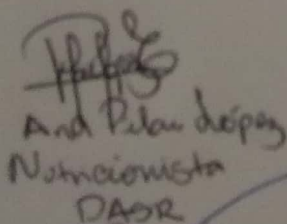 Ana Pilar López
Nutricionista
DASR